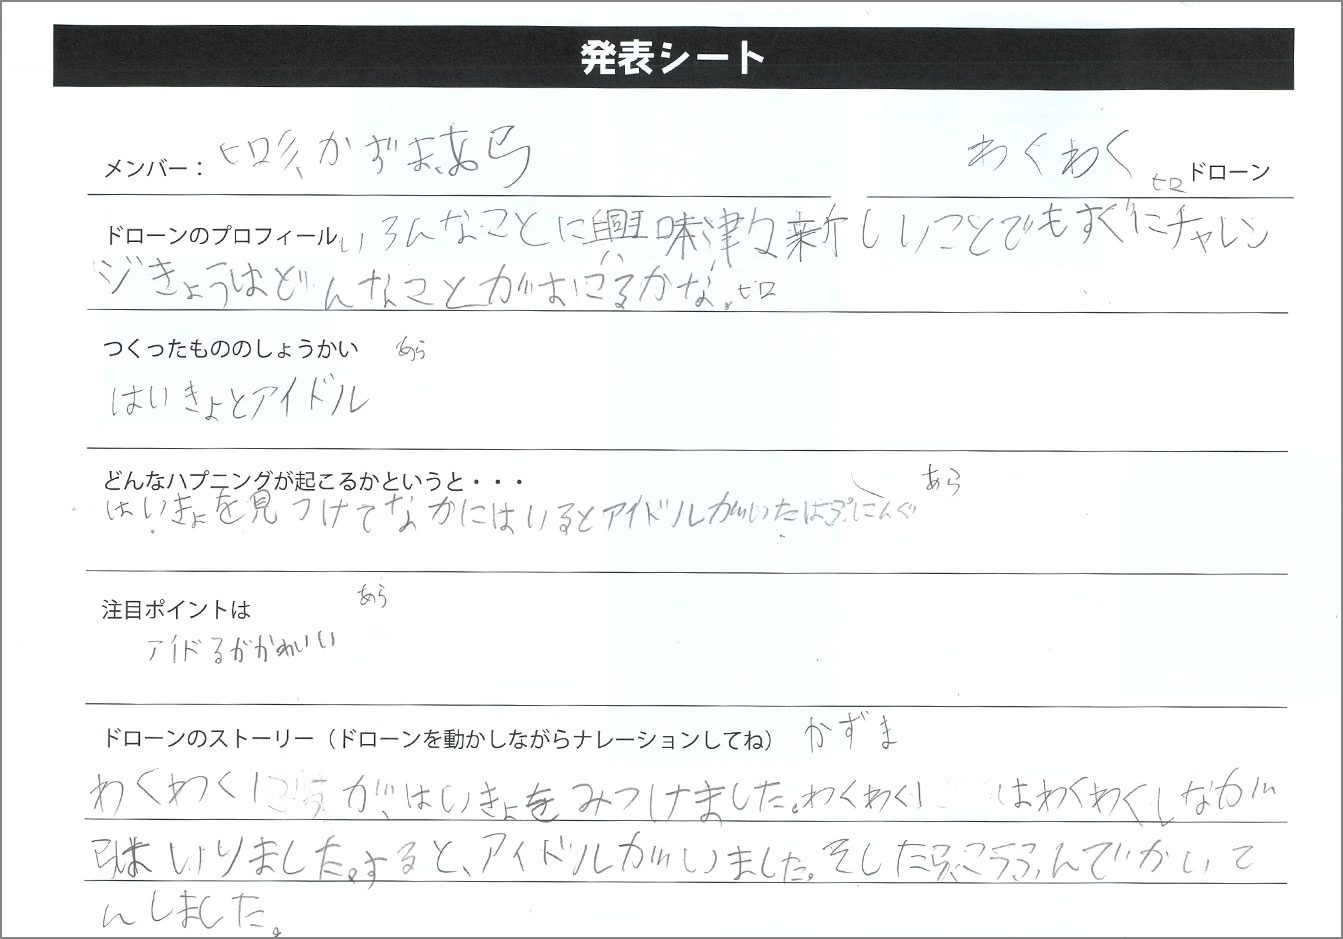 発表シート
メンバー： ヒロ彡、かずま、あら わくわく ヒロ ドローン
ドローンのプロフィール いろんなことに興味津々新しいことでもすぐにチャレン
ジきょうはどんなことがおこるかな。ヒロ
つくったもののしょうかい あら
はいきょとアイドル
どんなハプニングが起こるかというと・・・ あら
はいきょを見つけてなかにはいるとアイドルがいたはぷにんぐ
注目ポイントは あら
アイドるがかわいい
ドローンのストーリー（ドローンを動かしながらナレーションしてね） かずま
わくわく が、はいきょをみつけました。わくわく はわくわくしなが
いりました。すると、アイドルがいました。そしたら、こうふんでかいて
んしました。